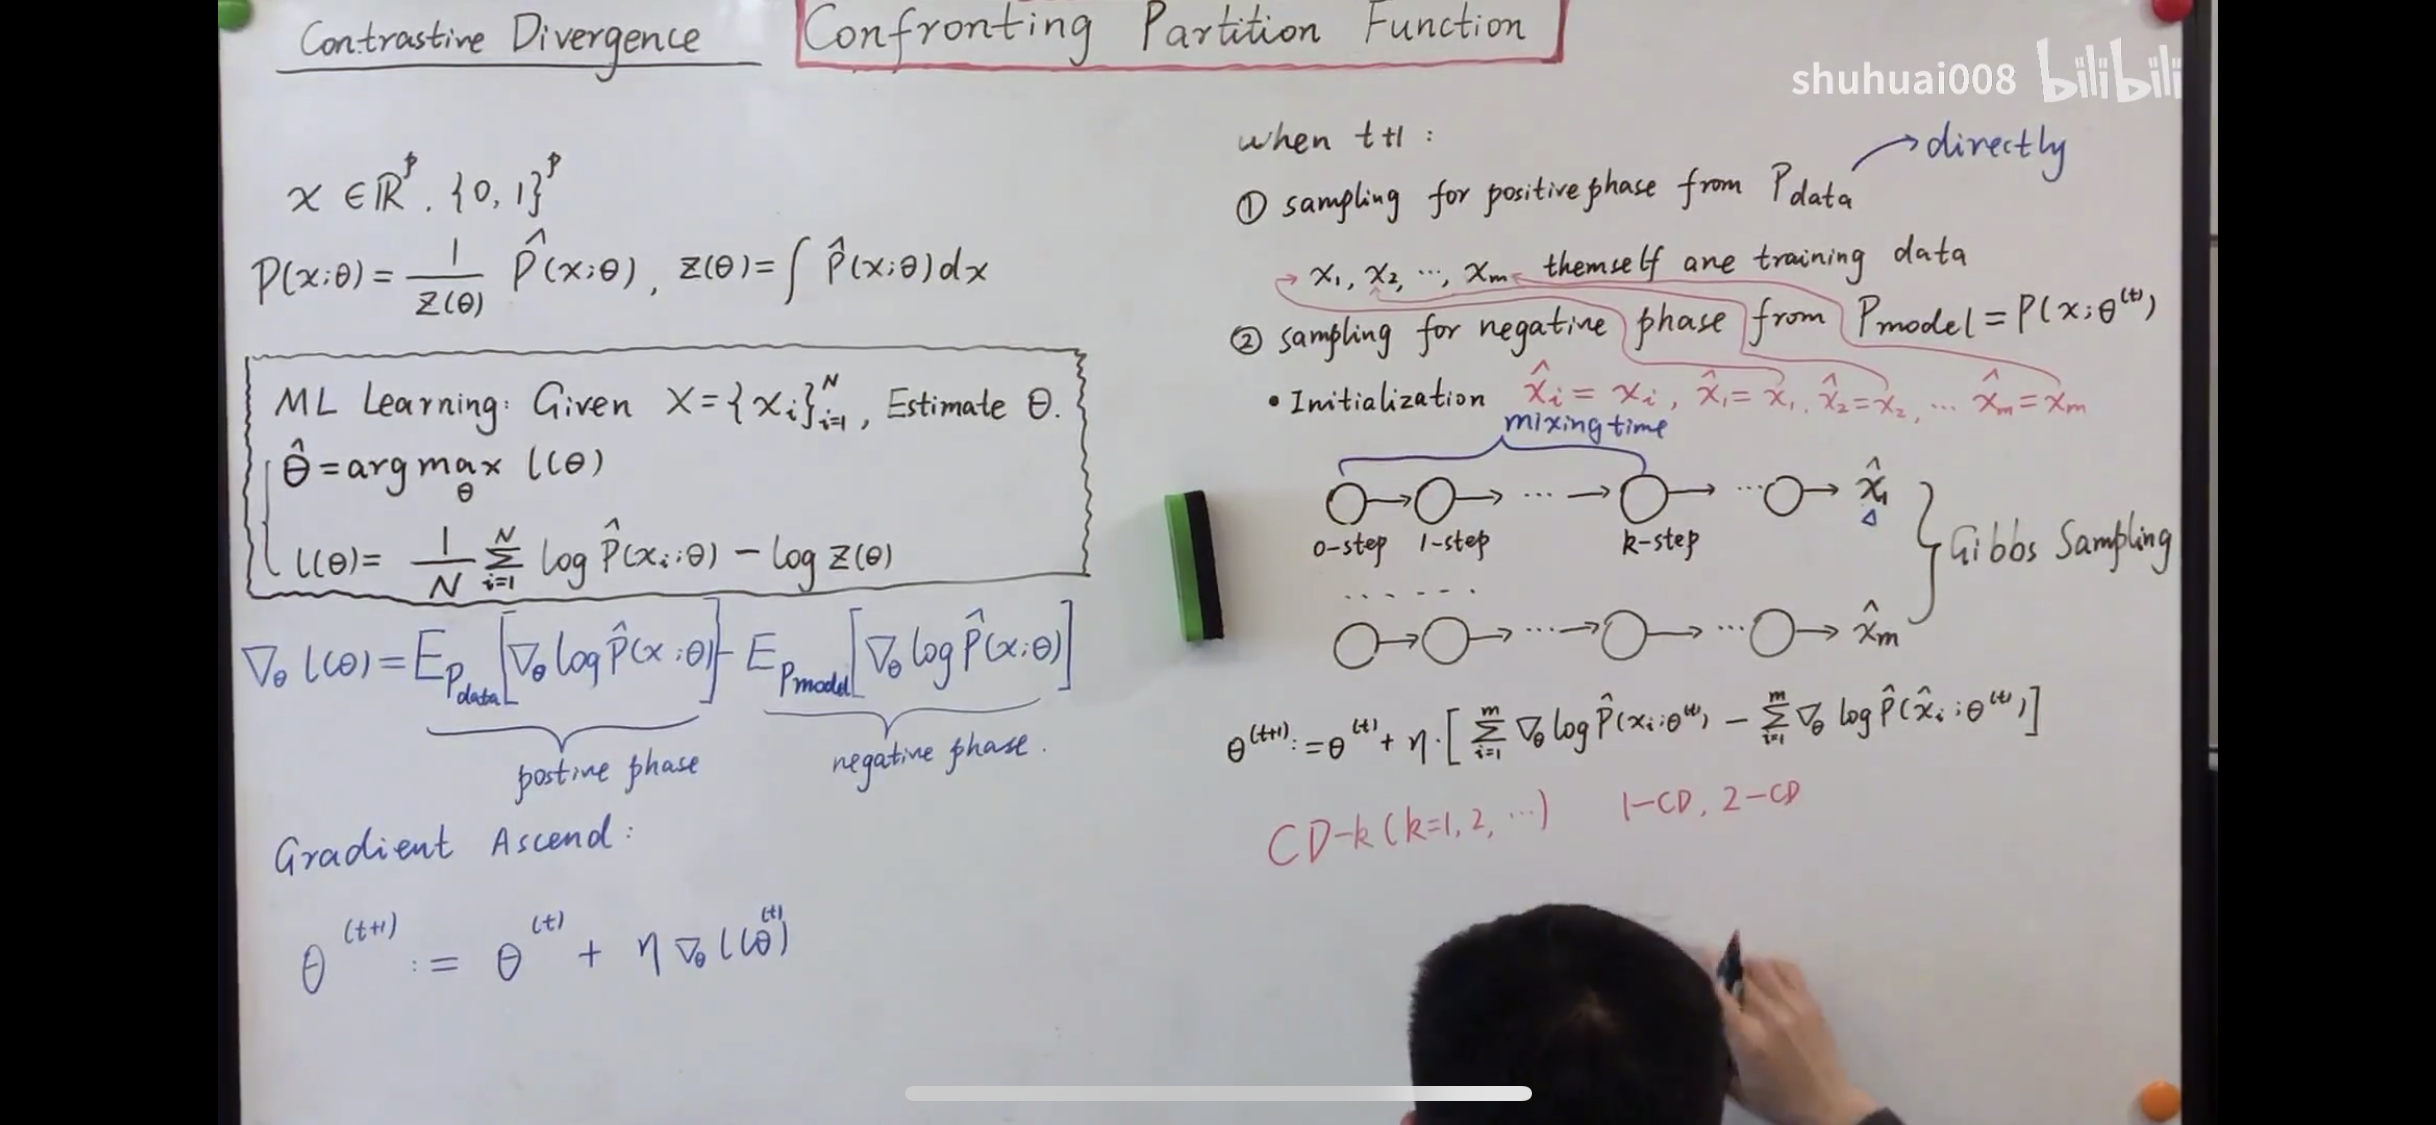 Contrastive Divergence
Confronting Partition Function
shuhuai008 bilibili
x ∈ ℝ^p, {0, 1}^p
P(x;θ) = 1/Z(θ) P̂(x;θ), Z(θ) = ∫ P̂(x;θ) dx
ML Learning: Given X = {x_i}_{i=1}^N, Estimate θ.
θ̂ = arg max_θ l(θ)
l(θ) = 1/N Σ_{i=1}^N log P̂(x_i;θ) − log Z(θ)
∇_θ l(θ) = E_{Pdata}[∇_θ log P̂(x;θ)] − E_{Pmodel}[∇_θ log P̂(x;θ)]
postive phase
negative phase.
Gradient Ascend:
θ^(t+1) := θ^(t) + η ∇_θ l(θ^(t))
when t+1:
directly
① sampling for positive phase from Pdata
x_1, x_2, ···, x_m themself are training data
② sampling for negative phase from Pmodel = P(x;θ^(t))
• Initialization x̂_i = x_i, x̂_1 = x_1, x̂_2 = x_2, ··· x̂_m = x_m
mixing time
→ → ··· → → ··· → x̂_1
Δ
0-step 1-step k-step
Gibbs Sampling
· · · · · ·
→ → ··· → → ··· → x̂_m
θ^(t+1) := θ^(t) + η·[Σ_{i=1}^m ∇_θ log P̂(x_i;θ^(t)) − Σ_{i=1}^m ∇_θ log P̂(x̂_i;θ^(t))]
CD-k (k=1, 2, ···) 1-CD, 2-CD